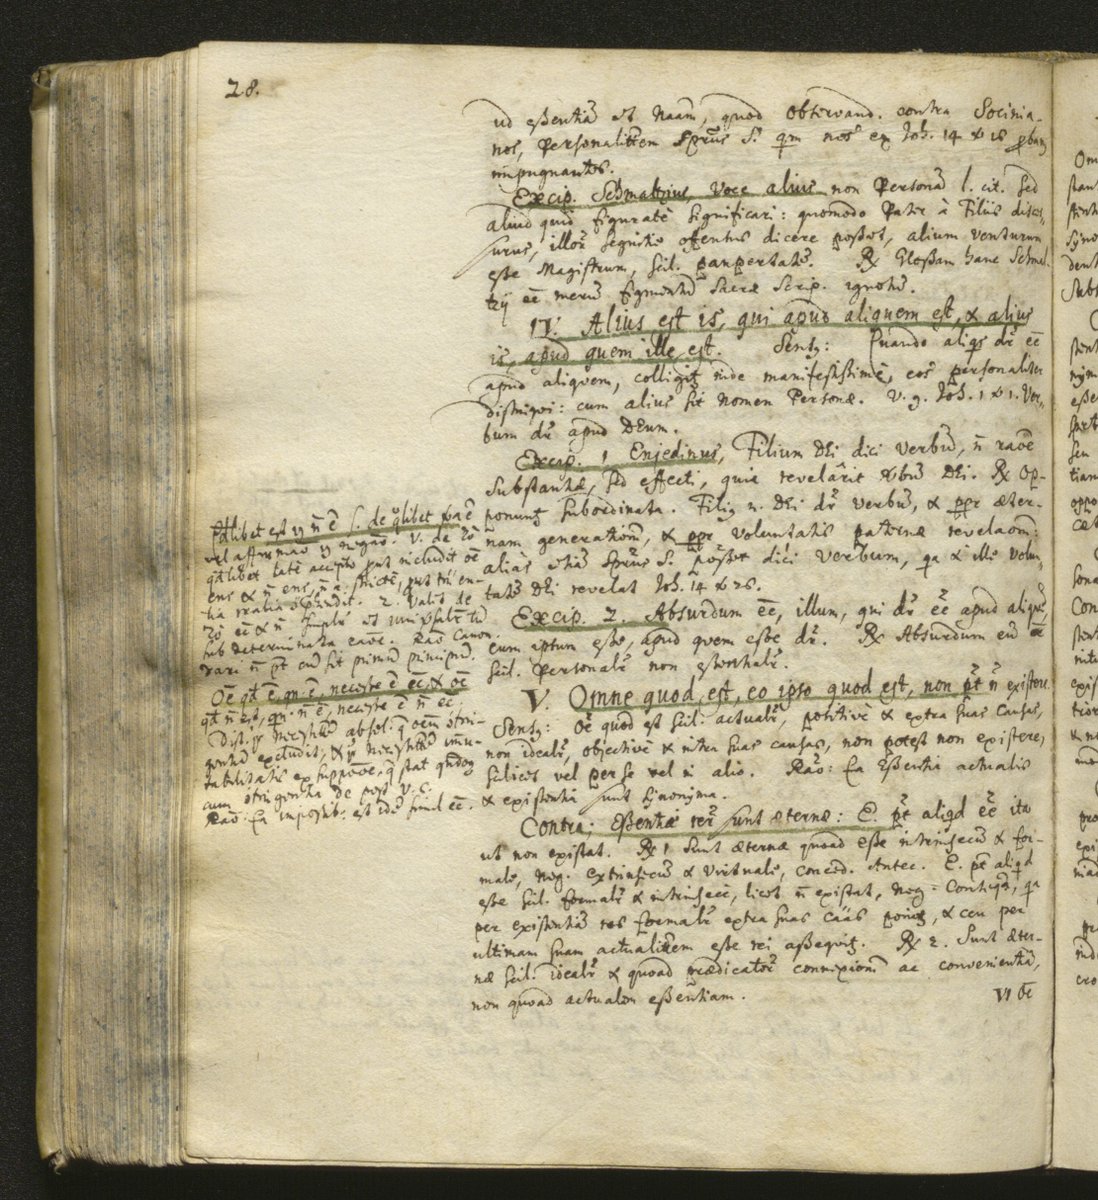 28.
ud eßentiã et Naam, quod observand. contra Socinia-
nos, Personalitẽm Sprũs S. qm nos ex Joh. 14 & 18 ꝓbam9
impugnantes.
Excip. Schmaltzius, Voce alius non Personã l. cit. sed
aliud quid figuratè significari: quomodo Pater à Filius disces-
surus, illor segnitie offensus dicere poßet, alium venturum
eße Magistrum, scil. paupertatẽ. ℞ Gloßam hanc Schmal-
tzij eẽ merũ figmentũ Sacræ Scrip. ignotũ.
IV. Alius est is, qui apud aliquem est, & alius
is, apud quem ille est. Sens9: Quando aliqs dr eẽ
apud aliquem, colligit inde manifestißimè, eos personaliter
distingvi: cum alius sit nomen Personæ. V. g. Joh. 1 v. 1. Ver-
bum dr apud DEum.
Excip. 1 Enjedinus, Filium DEi dici verbũ, ñ raõe
Substantiæ, sed effecti, quia revelârit verbũ DEi. ℞ Op-
ponunt subordinata. Filiq n. DEi dr verbũ, & ꝓpr æter-
nam generationẽ, & ꝓpr voluntatis paternæ revelaom:
aliàs etiã Sprũs S. poßet dici Verbum, qa & ille volun-
tatẽ DEi revelat Joh. 14 v 26.
Excip. 2. Absurdum eẽ, illum, qui dr eẽ apud aliquẽ
eum ipsum eße, apud quem eße dr. ℞ Absurdum eũ eẽ
scil. Personalr non eßentialr.
V. Omne quod est, eo ipso quod est, non pt ñ existere
Sens9: Oẽ quod est scil: actualr, positivè & extra suas causas,
non idealr, objectivè & intra suas causas, non potest non existere,
scilicet vel per se vel in alio. Rão: Ea Eßentia actualis
& existentia sunt synonima.
Contra; Eßentiæ rer sunt æternæ: E. pt aliqd eẽ ita
ut non existat. ℞ 1 Sunt æternæ quoad eße intrinsecũ & for-
male, neg. extrinsecũ & virtuale, conced. Antec. E. pt aliqd
eße scil. formalr & intrinsecè, licet ñ existat, neg = Conseqã, qa
per existentiã res formalr extra suas cãas ponit9, & ceu per
ultimam suam actualitẽm eße rei aßequit9. ℞ 2. Sunt æter-
næ scil. idealr & quoad prædicator connexionẽ ac convenientiã,
non quoad actualem eßentiam.
VI Oẽ
Qdlibet est vl ñ ẽ s. de qlibet
vel affirmãõ vl negãõ. V. de
qdlibet latè acceptõ, prout includit oẽ
ens & ñ ens, ñ a. strictè, prout tm en-
tia realia. 2. Valet de
eẽ & ñ simplr et universalr
sub determinata raõe. Rão Canon.
vari ñ pt cũ sit primũ principiũ.
Oẽ qd ẽ, qn ẽ, necesse ẽ eẽ, & oẽ
qd ñ est, qn ñ ẽ, necesse ẽ ñ eẽ.
Dist. inter necessitẽ absol: q oem contin-
gentiã excludit, & inter necessitẽ immu-
tabilitatis ex suppõõe, q stat
cum contingentia
Rão: Ea impoßib: est idẽ simul eẽ.